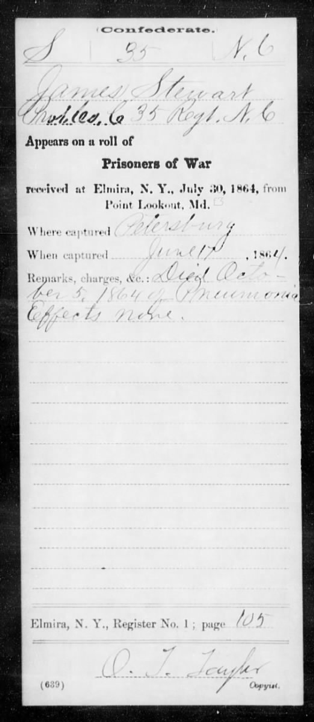 Confederate.
S 35 N. C
James Stewart
Co. C 35 Regt. N. C
Appears on a roll of
Prisoners of War
received at Elmira, N. Y., July 30, 1864, from
Point Lookout, Md.
Where captured Petersburg
When captured June 17, 1864.
Remarks, charges, &c.: Died Octo-
ber 5, 1864 of Pneumonia
Effects none.
Elmira, N. Y., Register No. 1; page 105
O. T. Taylor
(639) Copyist.